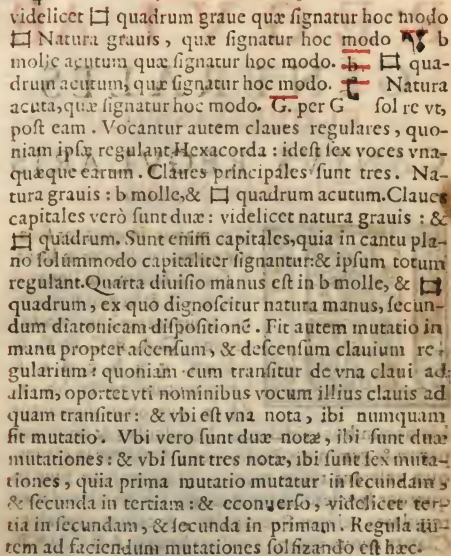 videlicet ♮ quadrum graue quæ ſignatur hoc modo
♮ Natura grauis, quæ ſignatur hoc modo b
molle acutum quæ ſignatur hoc modo. b. ♮ qua-
drum acutum, quæ ſignatur hoc modo. Natura
acuta, quæ ſignatur hoc modo. G. per G ſol re vt,
poſt eam. Vocantur autem claues regulares, quo-
niam ipſæ regulant Hexacorda: ideſt ſex voces vna-
quæque earum. Claues principales ſunt tres. Na-
tura grauis: b molle, & ♮ quadrum acutum. Claues
capitales verò ſunt duæ: videlicet natura grauis: &
♮ quadrum. Sunt enim capitales, quia in cantu pla-
no ſolummodo capitaliter ſignantur: & ipſum totum
regulant. Quarta diuiſio manus eſt in b molle, & ♮
quadrum, ex quo dignoſcitur natura manus, ſecun-
dum diatonicam diſpoſitionē. Fit autem mutatio in
manu propter aſcenſum, & deſcenſum clauium re-
gularium: quoniam cum tranſitur de vna claui ad
aliam, oportet vti nominibus vocum illius clauis ad
quam tranſitur: & vbi eſt vna nota, ibi numquam
fit mutatio. Vbi vero ſunt duæ notæ, ibi ſunt duæ
mutationes: & vbi ſunt tres notæ, ibi ſunt ſex muta-
tiones, quia prima mutatio mutatur in ſecundam,
& ſecunda in tertiam: & econuerſo, videlicet ter-
tia in ſecundam, & ſecunda in primam. Regula au-
tem ad faciendum mutationes ſolfizando eſt hæc.